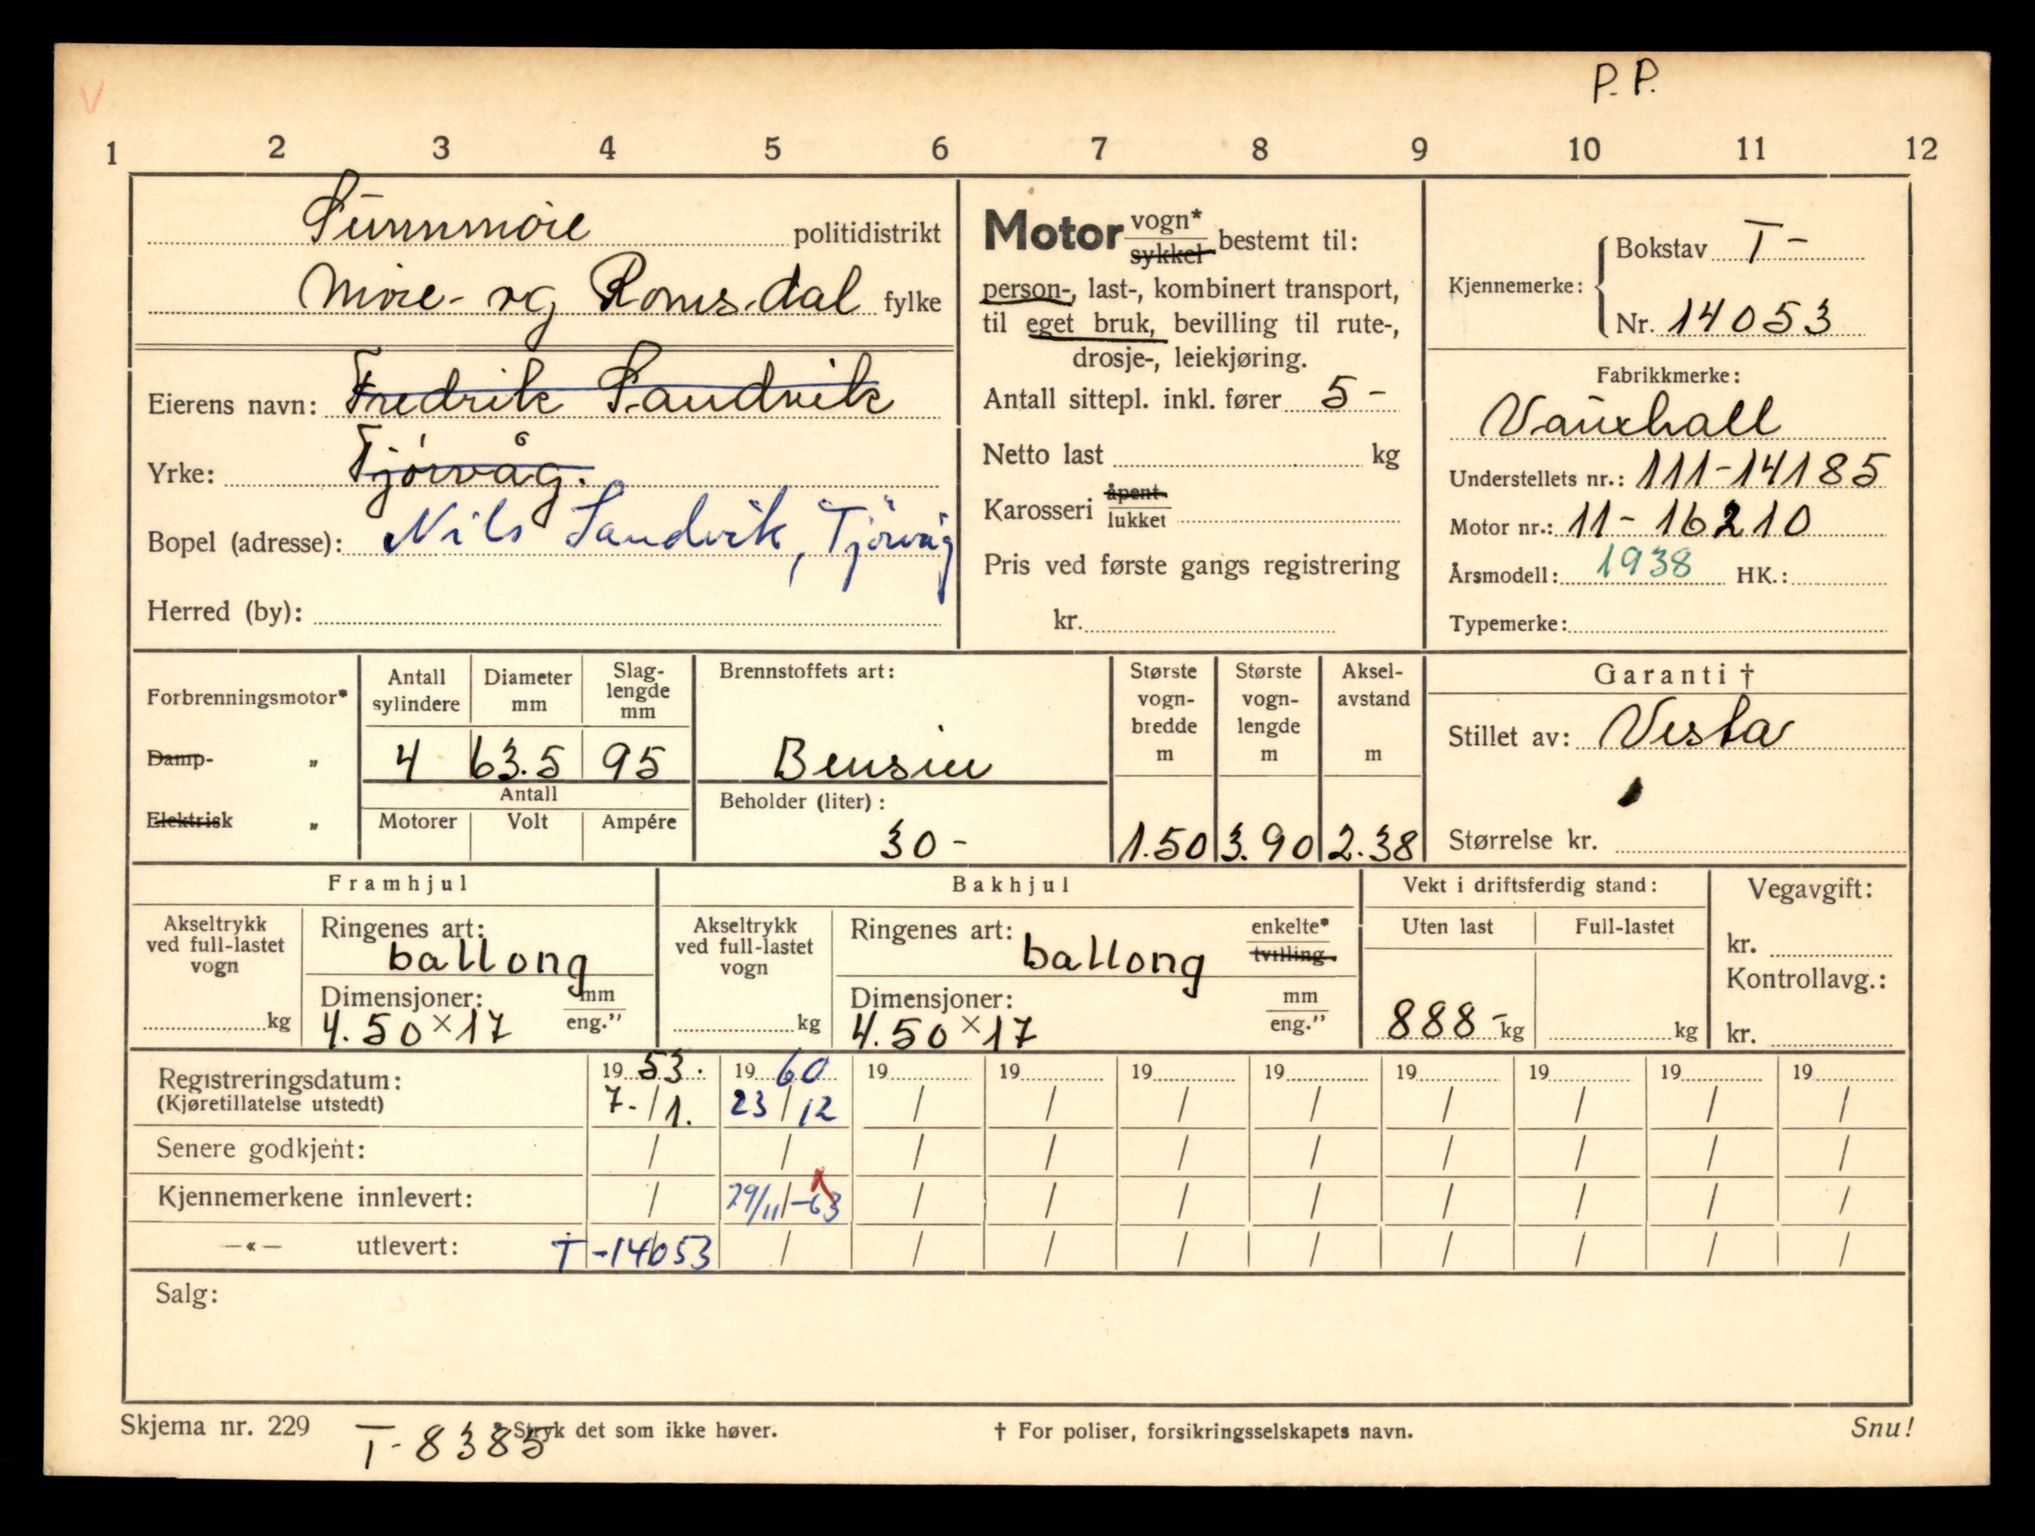 V
P. P.
1 2 3 4 5 6 7 8 9 10 11 12
Sunnmøre politidistrikt
Møre- og Romsdal fylke
Eierens navn: Fredrik Sandvik
Yrke: Tjørvåg.
Bopel (adresse): Nils Sandvik, Tjørvåg
Herred (by):
Motor vogn* sykkel bestemt til:
person-, last-, kombinert transport,
til eget bruk, bevilling til rute-,
drosje-, leiekjøring.
Antall sittepl. inkl. fører 5 -
Netto last kg
Karosseri åpent lukket
Pris ved første gangs registrering
kr.
Kjennemerke: Bokstav T -
Nr. 14053
Fabrikkmerke:
Vauxhall
Understellets nr.: 111-14185
Motor nr.: 11-16210
Årsmodell: 1938 HK.:
Typemerke:
Forbrenningsmotor*
Damp- „
Elektrisk „
Antall sylindere
Diameter mm
Slag-lengde mm
4 63.5 95
Antall
Motorer Volt Ampére
Brennstoffets art:
Bensin
Beholder (liter):
30 -
Største vogn-bredde m
Største vogn-lengde m
Aksel-avstand m
1.50 3.90 2.38
Garanti †
Stillet av: Vesta
Størrelse kr.
Framhjul
Akseltrykk
ved full-lastet
vogn
kg
Ringenes art:
ballong
Dimensjoner: mm eng.”
4.50 × 17
Bakhjul
Akseltrykk
ved full-lastet
vogn
kg
Ringenes art: enkelte* tvilling.
ballong
Dimensjoner: mm eng.”
4.50 × 17
Vekt i driftsferdig stand:
Uten last Full-lastet
888 - kg kg
Vegavgift:
kr.
Kontrollavg.:
kr.
Registreringsdatum: 19 53. 19 60 19 19 19 19 19 19 19 19
(Kjøretillatelse utstedt) 7. / 1. 23 / 12 / / / / / / / /
Senere godkjent: / / / / / / / / / /
Kjennemerkene innlevert: / 29/11 -63 / / / / / / / /
—«— utlevert: T-14053 / / / / / / / / /
Salg:
Skjema nr. 229 T-8385 * Stryk det som ikke høver. † For poliser, forsikringsselskapets navn. Snu!